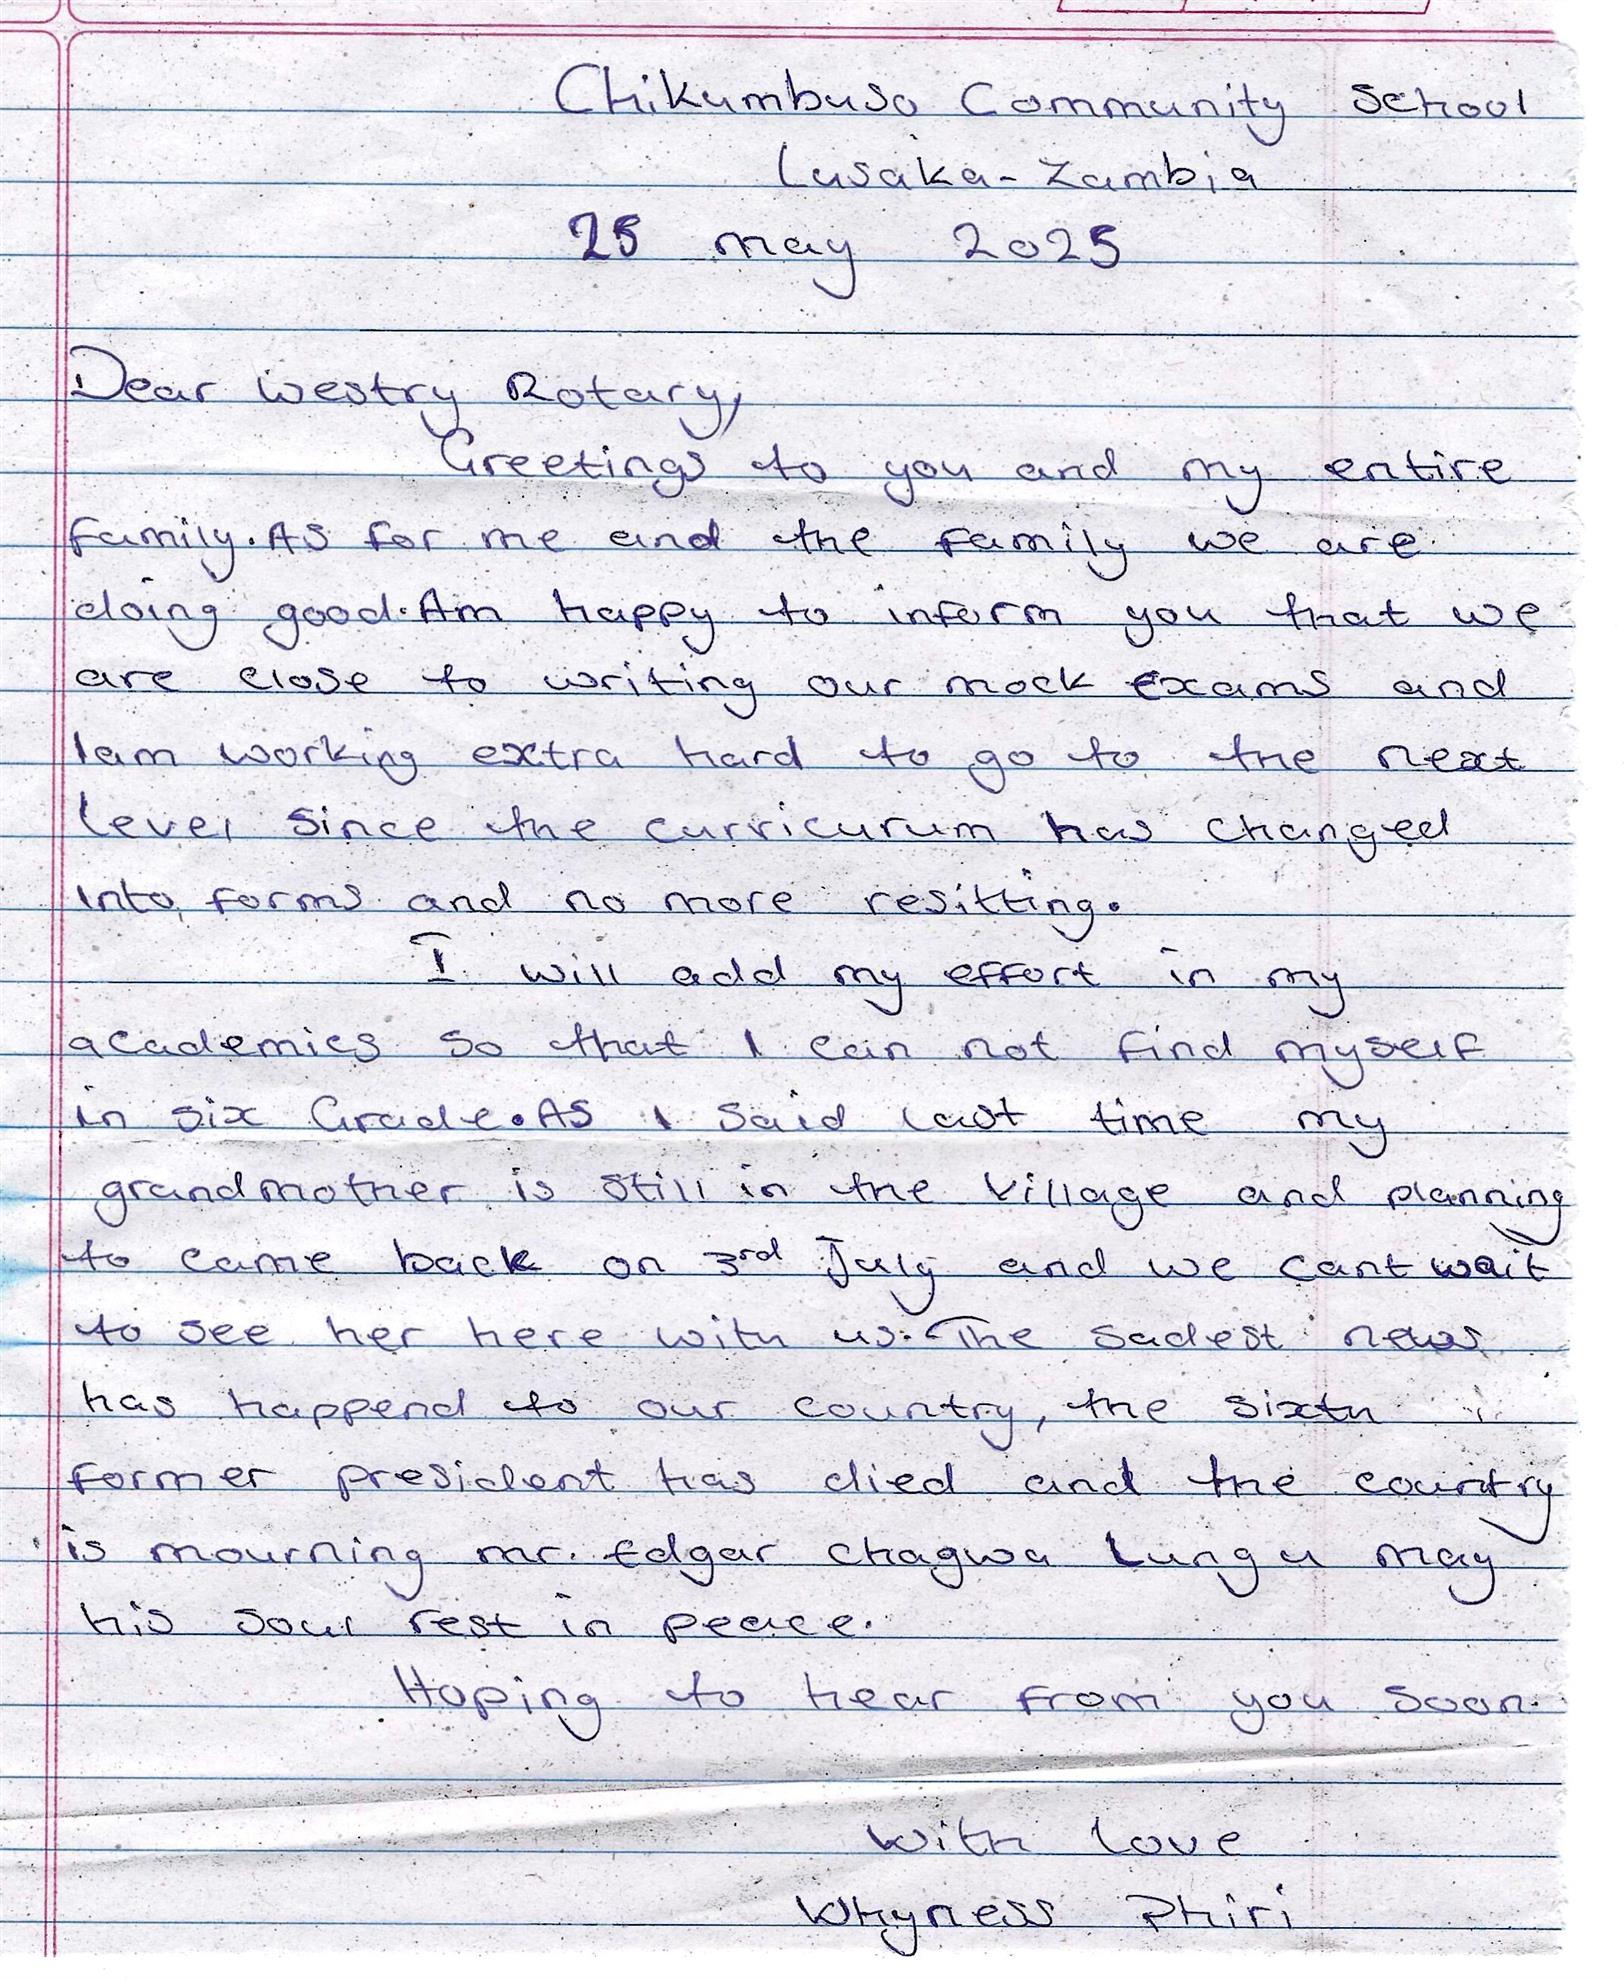 Chikumbuso Community School
Lusaka - Zambia
25 may 2025
Dear Westry Rotary,
Greetings to you and my entire
family. As for me and the family we are
doing good. Am happy to inform you that we
are close to writing our mock exams and
Iam working extra hard to go to the next
level since the curricurum has changed
into forms and no more resitting.
I will add my effort in my
academics so that I can not find myself
in six Grade. As I said last time my
grandmother is still in the village and planning
to came back on 3rd July and we cant wait
to see her here with us. The sadest news
has happend to our country, the sixth
former president has died and the country
is mourning mr. Edgar Chagwa Lungu may
his soul rest in peace.
Hoping to hear from you soon.
With love
Whyness Phiri